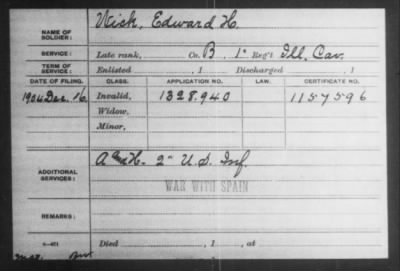 NAME OF SOLDIER: Nick, Edward H.
SERVICE: Late rank, Co. B, 1" Reg't Ill. Cav.
TERM OF SERVICE: Enlisted , 1 Discharged , 1
DATE OF FILING. CLASS. APPLICATION NO. LAW. CERTIFICATE NO.
1904 Dec. 16 Invalid, 1328.940 1157596
Widow,
Minor,
ADDITIONAL SERVICES: H. 2" U.S. Inf.
WAR WITH SPAIN
REMARKS:
Died , 1 , at